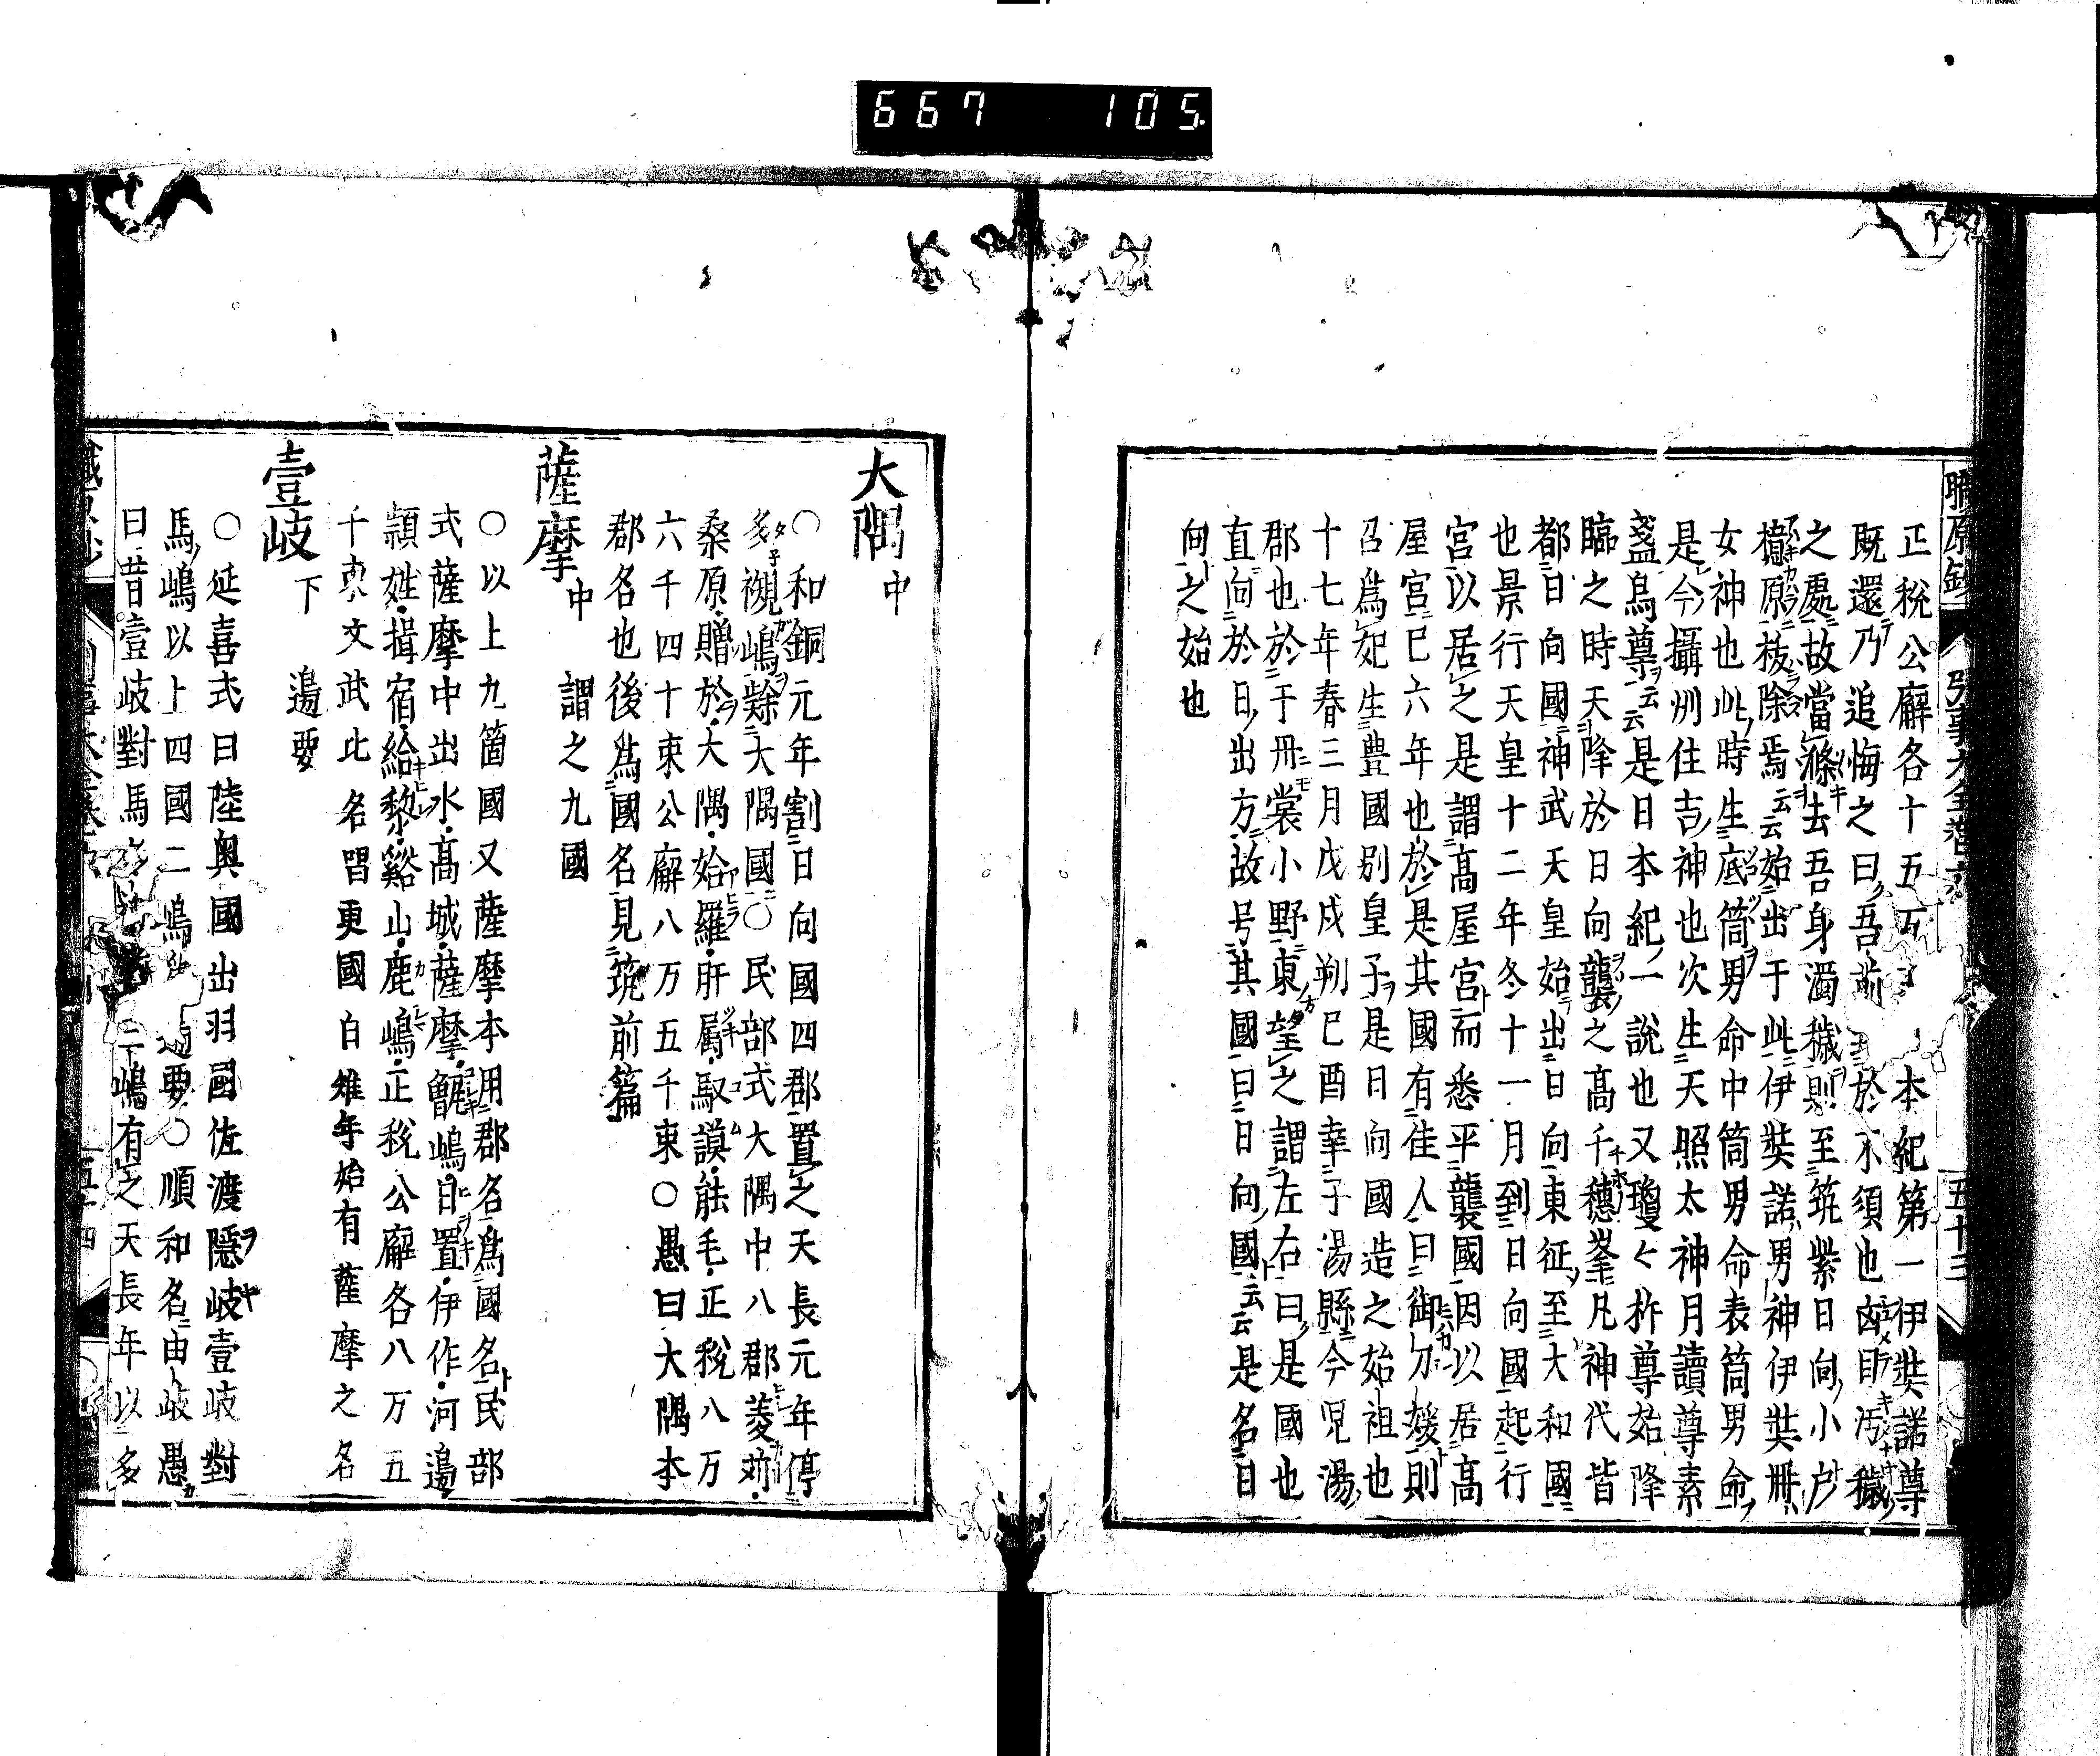 667 105
職原鈔 引事大全卷六 五十三
正稅公廨各十五万 本紀第一伊奘諾尊
既還乃追悔之曰吾前 於不須也凶目汚穢
之處故當滌去吾身濁穢則至筑紫日向小戶
檍原祓除焉云云始出于此伊奘諾男神伊奘冊
女神也此時生底筒男命中筒男命表筒男命
是今攝州住吉神也次生天照太神月讀尊素
盞烏尊云云是日本紀一說也又瓊々杵尊始降
臨之時天降於日向襲之高千穗峯凡神代皆
都日向國神武天皇始出日向東征至大和國
也景行天皇十二年冬十一月到日向國起行
宮以居之是謂高屋宮而悉平襲國因以居高
屋宮已六年也於是其國有佳人曰御刀媛則
召爲妃生豊國別皇子是日向國造之始祖也
十七年春三月戊戌朔己酉幸子湯縣今児湯
郡也於于丹裳小野東望之謂左右曰是國也
直向於日出方故号其國曰日向國云云是名日
向之始也
大隅 中
○和銅元年割日向國四郡置之天長元年停
多褹嶋隸大隅國○民部式大隅中八郡菱苅
桑原贈於大隅姶羅肝屬馭謨熊毛正稅八万
六千四十束公廨八万五千束○愚曰大隅本
郡名也後爲國名見筑前篇
薩摩 中 謂之九國
○以上九箇國又薩摩本用郡名爲國名民部
式薩摩中出水高城薩摩甑嶋日置伊作河邊
頴姓揖宿給黎谿山鹿嶋正稅公廨各八万五
千束文武此名習更國白雉年始有薩摩之名
壹岐 下 邊要
○延喜式曰陸奥國出羽國佐渡隱岐壹岐對
馬嶋以上四國二嶋 邊要○順和名由岐愚
曰昔壹岐對馬多 三嶋有之天長年以多